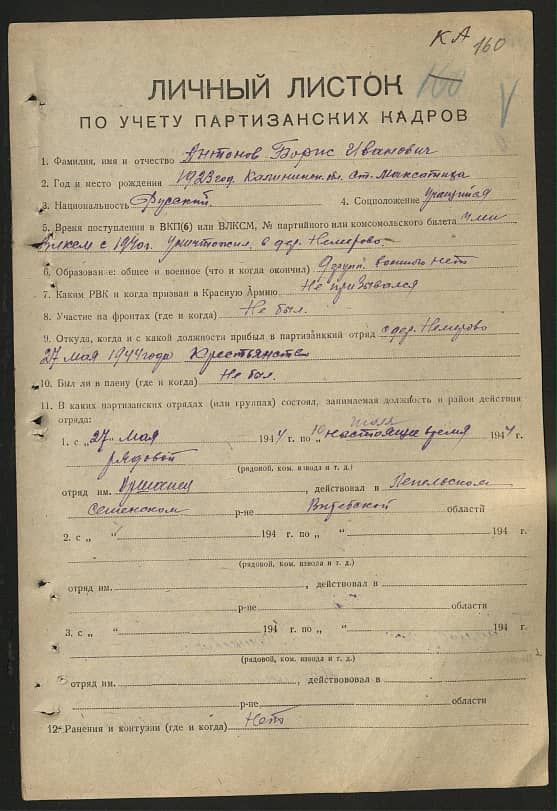 КА 160
160
ЛИЧНЫЙ ЛИСТОК
ПО УЧЕТУ ПАРТИЗАНСКИХ КАДРОВ
1. Фамилия, имя и отчество Антонов Борис Иванович
2. Год и место рождения 1923 год. Калининск. обл. ст. Максатиха
3. Национальность Русский. 4. Соцположение Учащийся
5. Время поступления в ВКП(б) или ВЛКСМ, № партийного или комсомольского билета Член
Влксм с 1940г. Уничтожил в дер. Немерово.
6. Образован-е: общее и военное (что и когда окончил) 9 групп. военного нет
7. Каким РВК и когда призван в Красную Армию Не призывался
8. Участие на фронтах (где и когда) Не был.
9. Откуда, когда и с какой должности прибыл в партизанкий отряд с дер. Немерово
27 мая 1944 года Крестьянство
10. Был ли в плену (где и когда) Не был.
11. В каких партизанских отрядах (или группах) состоял, занимаемая должность и район действия
отряда:
1. с „27" мая 1944 г. по „10 настоящее время 1944 г.
рядовой
(рядовой, ком. взвода и т. д.)
отряд им. , действовал в Лепельском
Сенненском р-не Витебской области
2. с „ “ 194 г. по „ “ 194 г.
(рядовой, ком. взвода и т. д.)
отряд им. , действовал в
р-не области
3. с „ “ 194 г. по „ “ 194 г.
(рядовой, ком. взвода и т. д.)
отряд им. , действововал в
р-не области
12. Ранения и контузии (где и когда) Нет